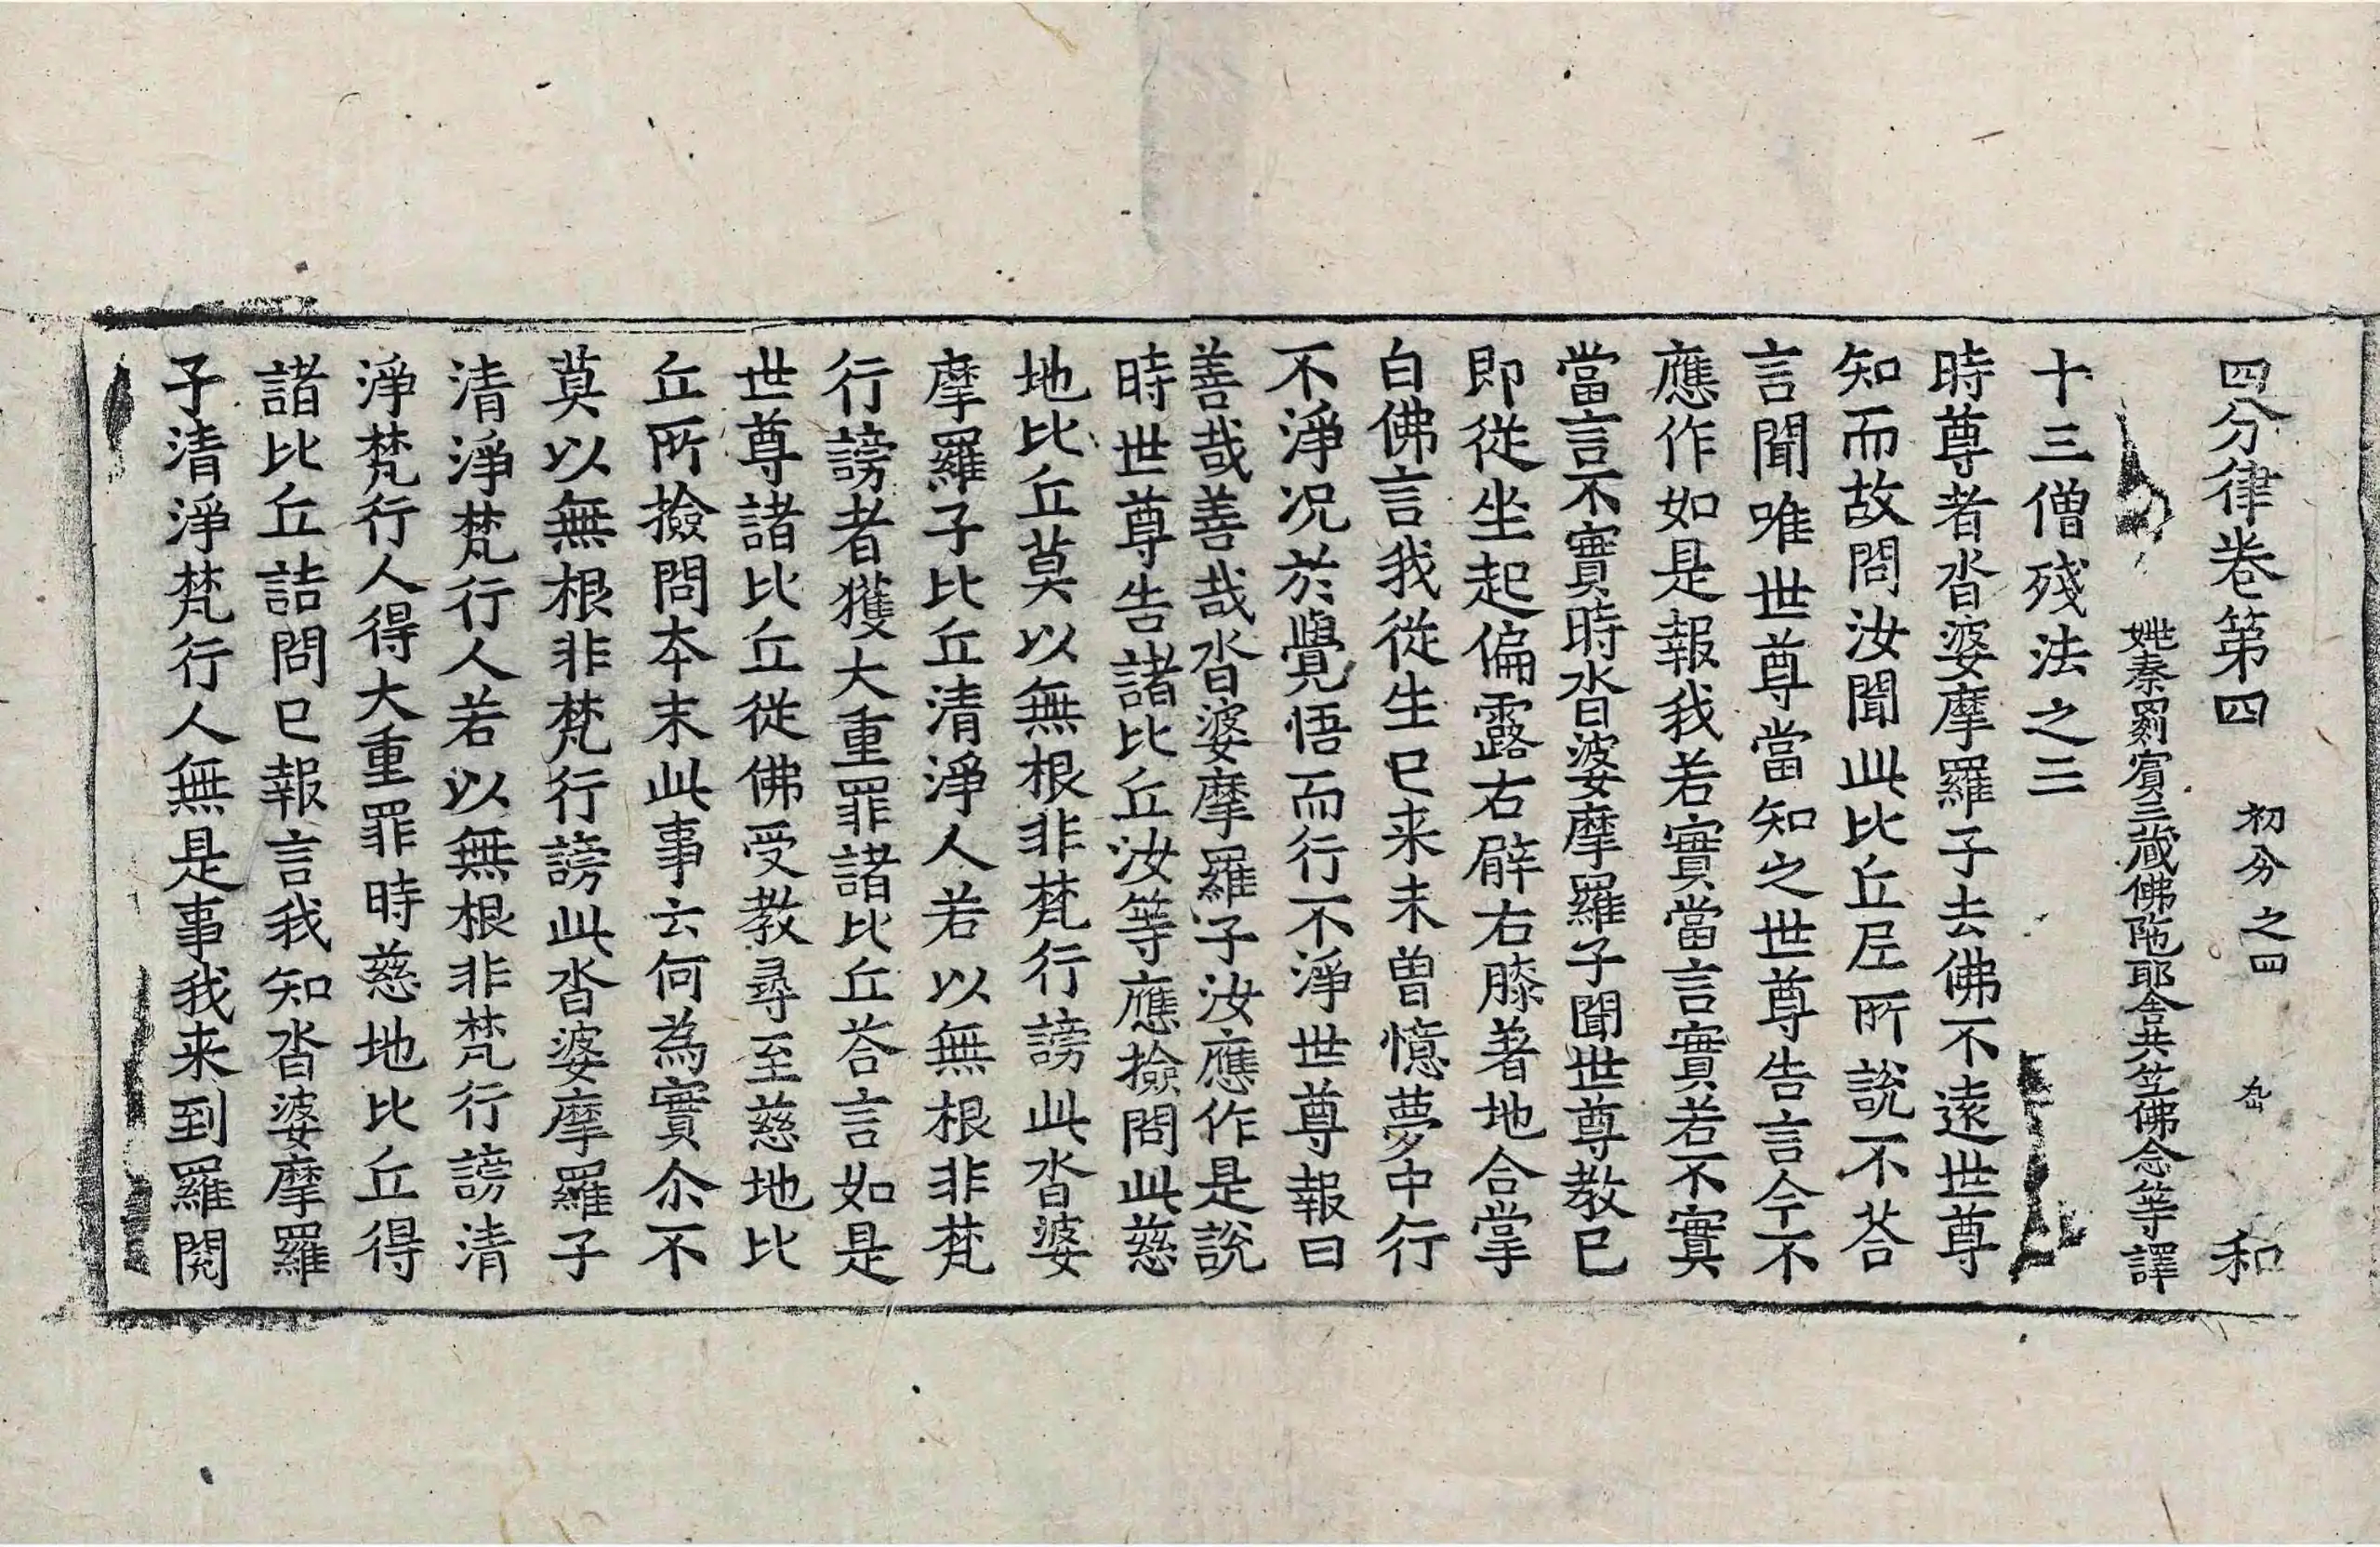 四分律卷第四 初分之四 和
姚秦罽賓三藏佛陁耶舍共笁佛念等譯
十三僧殘法之三
時尊者沓婆摩羅子去佛不遠世尊
知而故問汝聞此比丘𡰱所說不荅
言聞唯世尊當知之世尊告言今不
應作如是報我若實當言實若不實
當言不實時沓婆摩羅子聞世尊教已
即從坐起偏露右臂右膝著地合掌
白佛言我從生已来未曾憶夢中行
不淨况於覺悟而行不淨世尊報曰
善哉善哉沓婆摩羅子汝應作是說
時世尊告諸比丘汝等應撿問此慈
地比丘莫以無根非梵行謗此沓婆
摩羅子比丘清淨人若以無根非梵
行謗者獲大重罪諸比丘荅言如是
世尊諸比丘從佛受教尋至慈地比
丘所撿問本末此事云何為實尒不
莫以無根非梵行謗此沓婆摩羅子
清淨梵行人若以無根非梵行謗清
淨梵行人得大重罪時慈地比丘得
諸比丘詰問已報言我知沓婆摩羅
子清淨梵行人無是事我来到羅閱